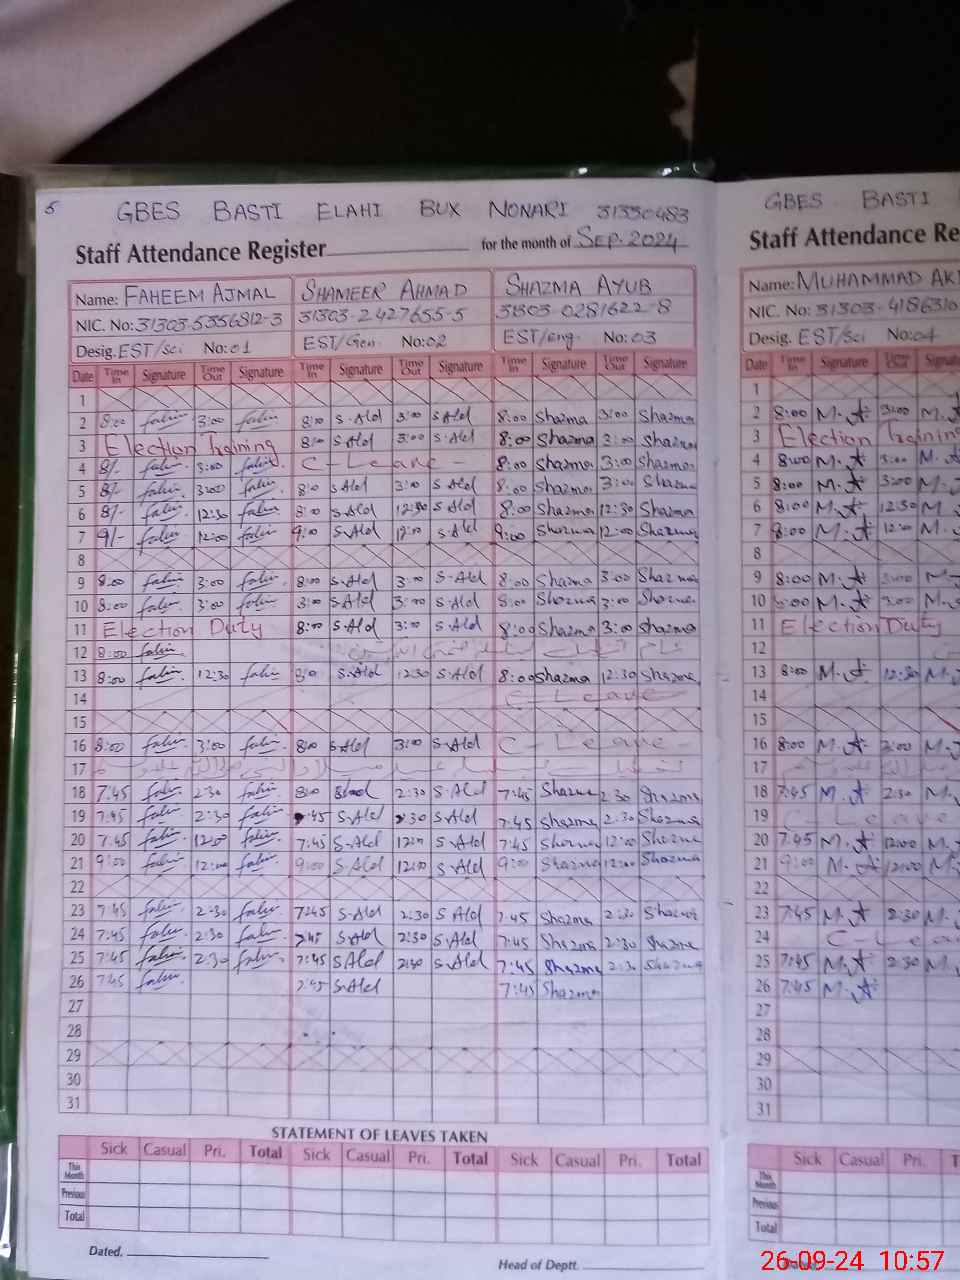 5 GBES BASTI ELAHI BUX NONARI 31330483
Staff Attendance Register for the month of SEP. 2024
Name: FAHEEM AJMAL SHAMEER AHMAD SHAZMA AYUB
NIC. No: 31303-5356812-3 31303-2427655-5 31303-0281622-8
Desig. EST/sci No: 01 EST/Gen No: 02 EST/eng. No: 03
Date Time In Signature Time Out Signature Time In Signature Time Out Signature Time In Signature Time Out Signature
1
2 8:00 fahim 3:00 fahim 8:00 S.Ald 3:00 S.Ald 8:00 Shazma 3:00 Shazma
3 Election Training 8:00 S.Ald 3:00 S.Ald 8:00 Shazma 3:00 Shazma
4 8/- fahim 3:00 fahim C-Leave- 8:00 Shazma 3:00 Shazma
5 8/- fahim 3:00 fahim 8:00 S.Ald 3:00 S.Ald 8:00 Shazma 3:00 Shazma
6 8/- fahim 12:30 fahim 8:00 S.Ald 12:30 S.Ald 8:00 Shazma 12:30 Shazma
7 9/- fahim 12:00 fahim 9:00 S.Ald 12:00 S.Ald 9:00 Shazma 12:00 Shazma
8
9 8:00 fahim 3:00 fahim 8:00 S.Ald 3:00 S.Ald 8:00 Shazma 3:00 Shazma
10 8:00 fahim 3:00 fahim S.Ald 3:00 S.Ald 8:00 Shazma 3:00 Shazma
11 Election Duty 8:00 S.Ald 3:00 S.Ald 8:00 Shazma 3:00 Shazma
12 8:00 fahim
13 8:00 fahim 12:30 fahim 8:00 S.Ald 12:30 S.Ald 8:00 Shazma 12:30 Shazma
14 C-Leave
15
16 8:00 fahim 3:00 fahim 8:00 S.Ald 3:00 S.Ald C-Leave-
17
18 7:45 fahim 2:30 fahim 8:00 2:30 S.Ald 7:45 Shazma 2:30 Shazma
19 7:45 fahim 2:30 fahim :45 S.Ald 2:30 S.Ald 7:45 Shazma 2:30 Shazma
20 7:45 fahim 12:00 fahim 7:45 S.Ald 12:00 S.Ald 7:45 Shazma 12:00 Shazma
21 9:00 fahim 12:00 fahim 9:00 S.Ald 12:00 S.Ald 9:00 Shazma 12:00 Shazma
22
23 7:45 fahim 2:30 fahim 7:45 S.Ald 2:30 S.Ald 7:45 Shazma 2:30 Shazma
24 7:45 fahim 2:30 fahim 7:45 S.Ald 2:30 S.Ald 7:45 Shazma 2:30 Shazma
25 7:45 fahim 2:30 fahim 7:45 S.Ald 2:30 S.Ald 7:45 Shazma 2:30 Shazma
26 7:45 fahim 7:45 S.Ald 7:45 Shazma
27
28
29
30
31
STATEMENT OF LEAVES TAKEN
Sick Casual Pri. Total Sick Casual Pri. Total Sick Casual Pri. Total
This Month
Previous
Total
Dated. Head of Deptt.
GBES BASTI
Staff Attendance Re
Name: MUHAMMAD AK
NIC. No: 31303-4186310
Desig. EST/Sci No: 04
Date Time In Signature Time Out Signatu
1
2 8:00 M.A 3:00 M.
3 Election Training
4 8:00 M.A 3:00 M.
5 8:00 M.A 3:00 M.
6 8:00 M.A 12:30 M.
7 9:00 M.A 12:00 M.
8
9 8:00 M.A 3:00 M.
10 8:00 M.A 3:00 M.
11 Election Duty
12
13 8:00 M.A 12:30 M.
14
15
16 8:00 M.A 3:00 M.
17
18 7:45 M.A 2:30 M.
19 C-Leave
20 7:45 M.A 12:00 M.
21 9:00 M.A 12:00 M.
22
23 7:45 M.A 2:30 M.
24 C-Lea
25 7:45 M.A 2:30 M.
26 7:45 M.A
27
28
29
30
31
Sick Casual Pri. T
This Month
Previous
Total
26-09-24 10:57